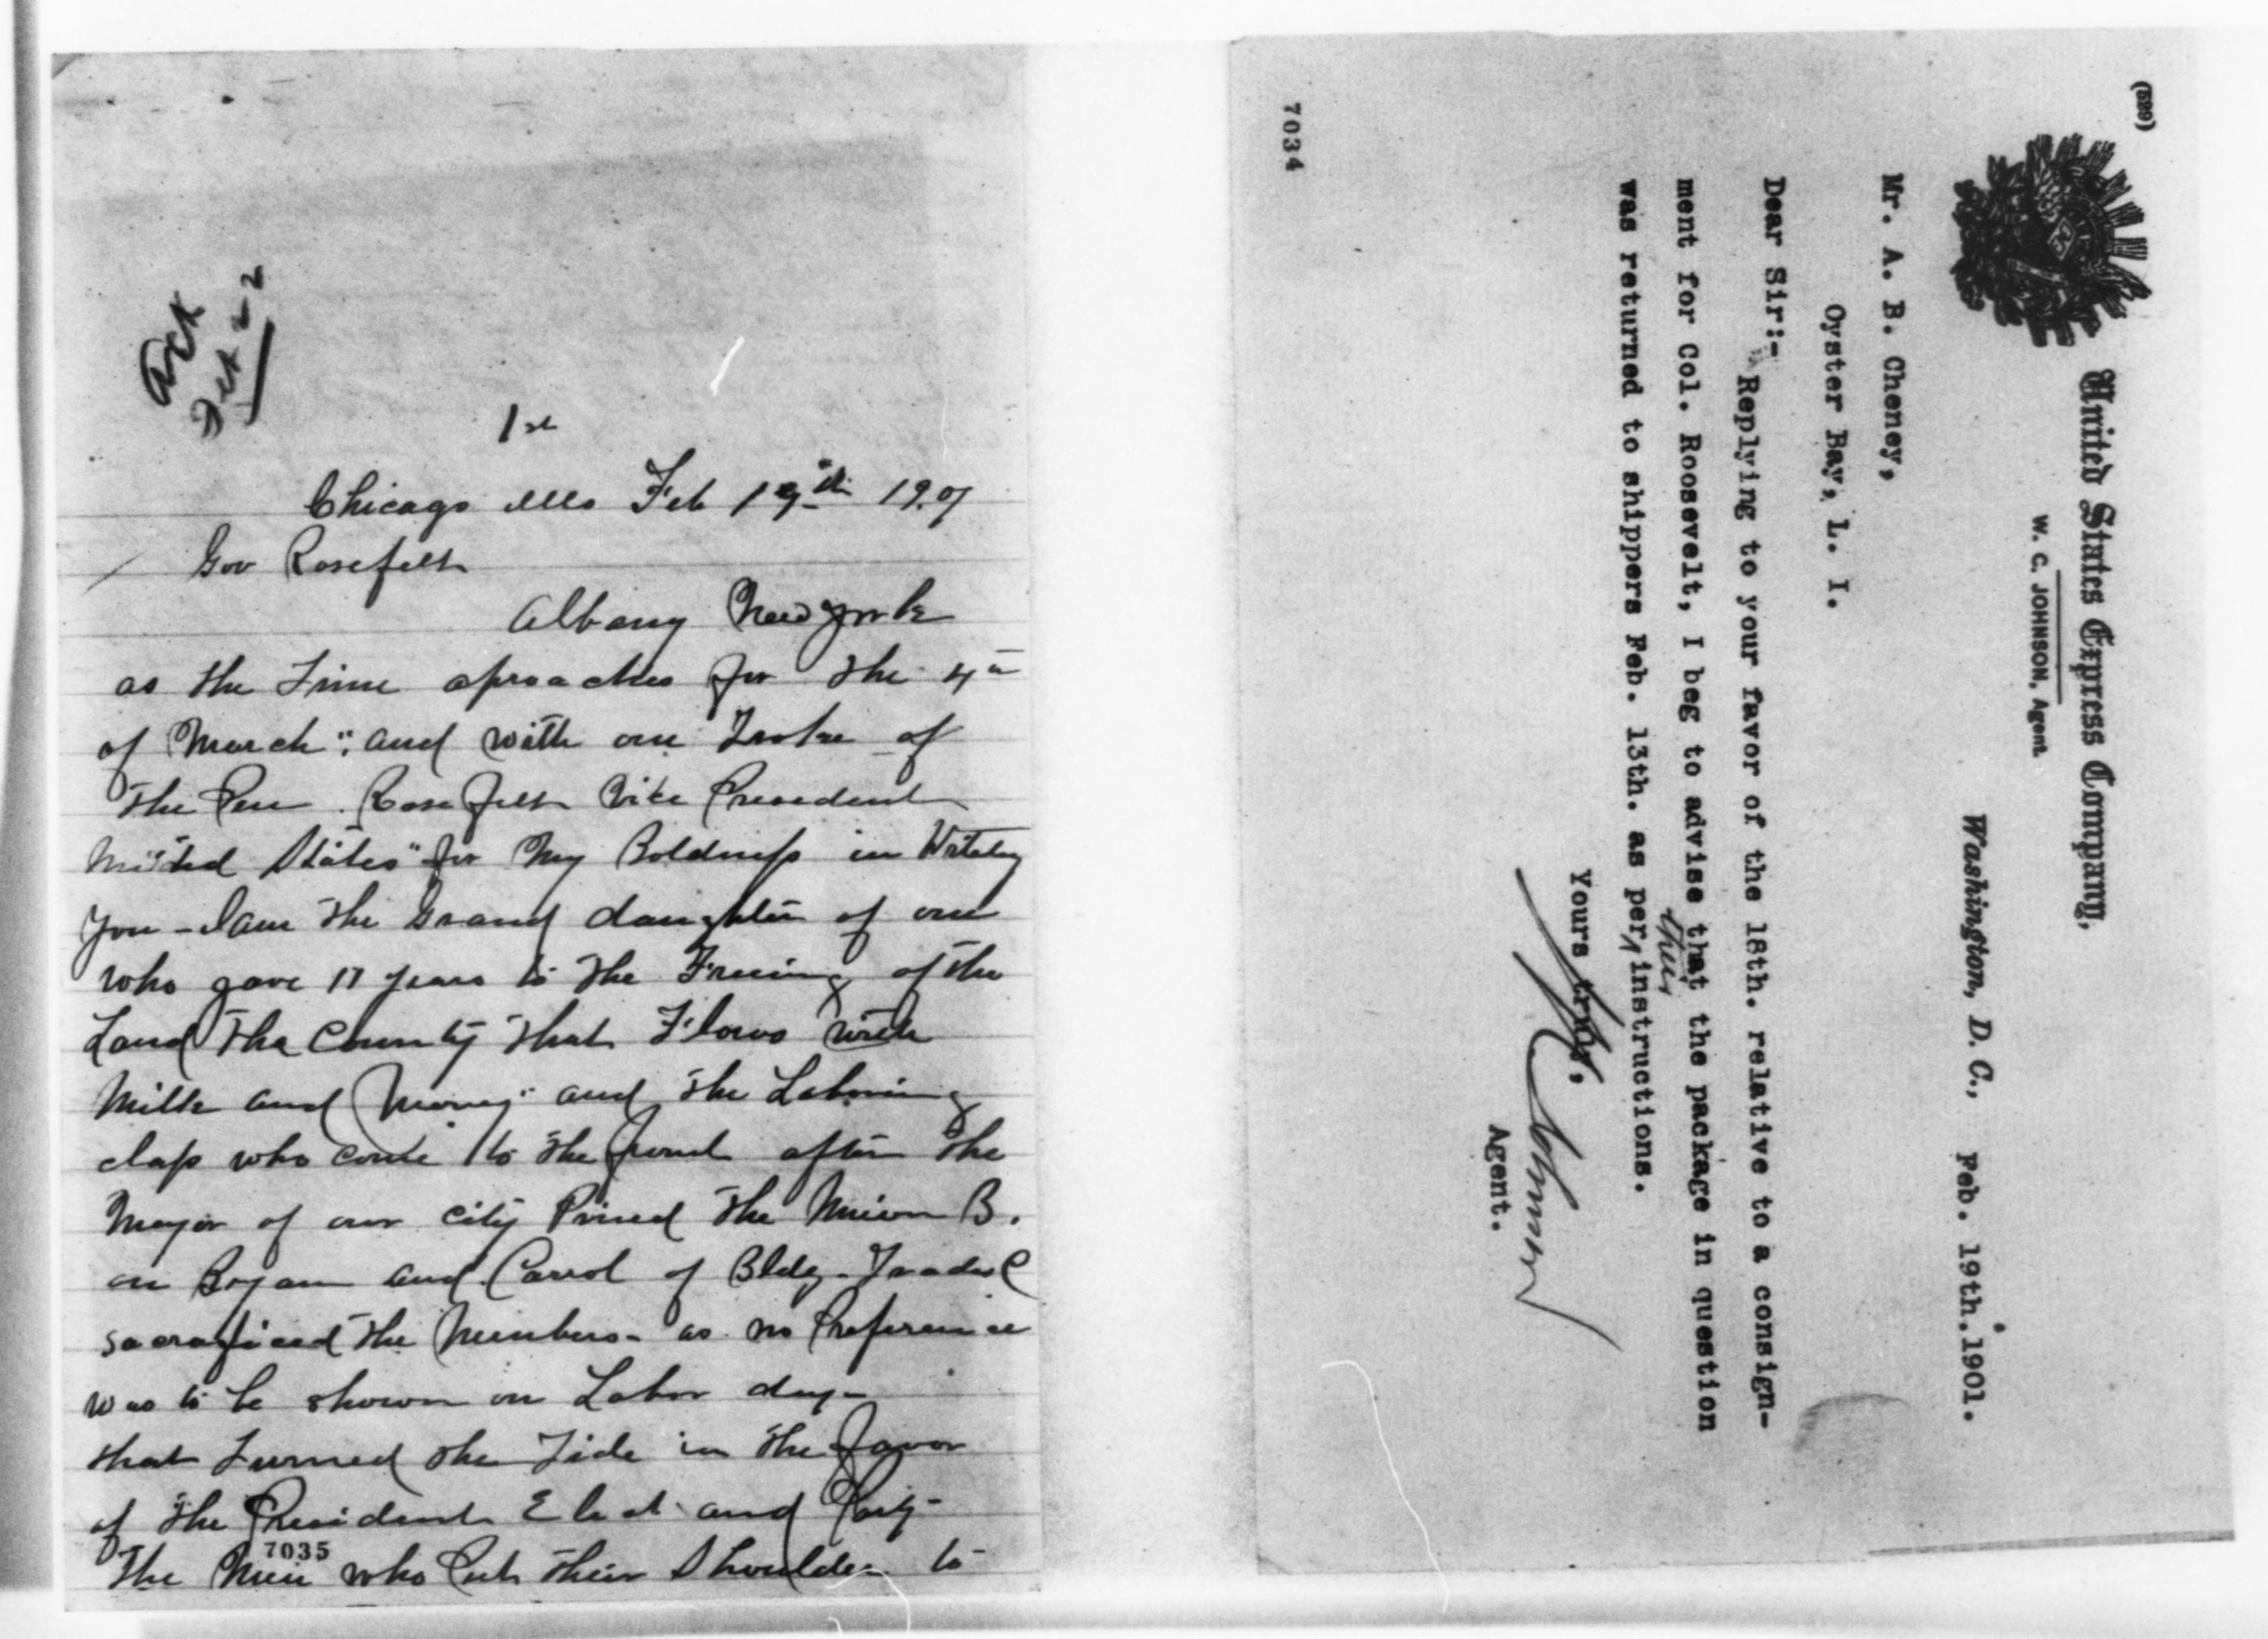 Ack
Feb 22
1st
Chicago Ills Feb 19th 1901
Gov Rosefelt
Albany New York
as the Time aproaches for the 4th
of March", and with one of
the Pen. Rosefelt Vice President
United States" for My Boldness in
You - I am the Grand daughter of one
who gave 17 years to the Freeing of the
Land The Country that Flows with
Milk and and the Laboring
class who come to the front after the
Mayor of our City the Union B.
on Bryan and Carrol of Bldg - Trades C
sacraficed the Members - as no Preference
was to be shown on Labor day -
that Turned the Tide in the favor
of the President Elect and Party -
The Men who Put their Shoulder to
7035
(589)
United States Express Company,
W. C. JOHNSON, Agent
Washington, D. C., Feb. 19th. 1901.
Mr. A. B. Cheney,
Oyster Bay, L. I.
Dear Sir:-
Replying to your favor of the 18th. relative to a consign-
ment for Col. Roosevelt, I beg to advise that the package in question
was returned to shippers Feb. 13th. as per their instructions.
Yours truly,
W C Johnson
Agent.
7034